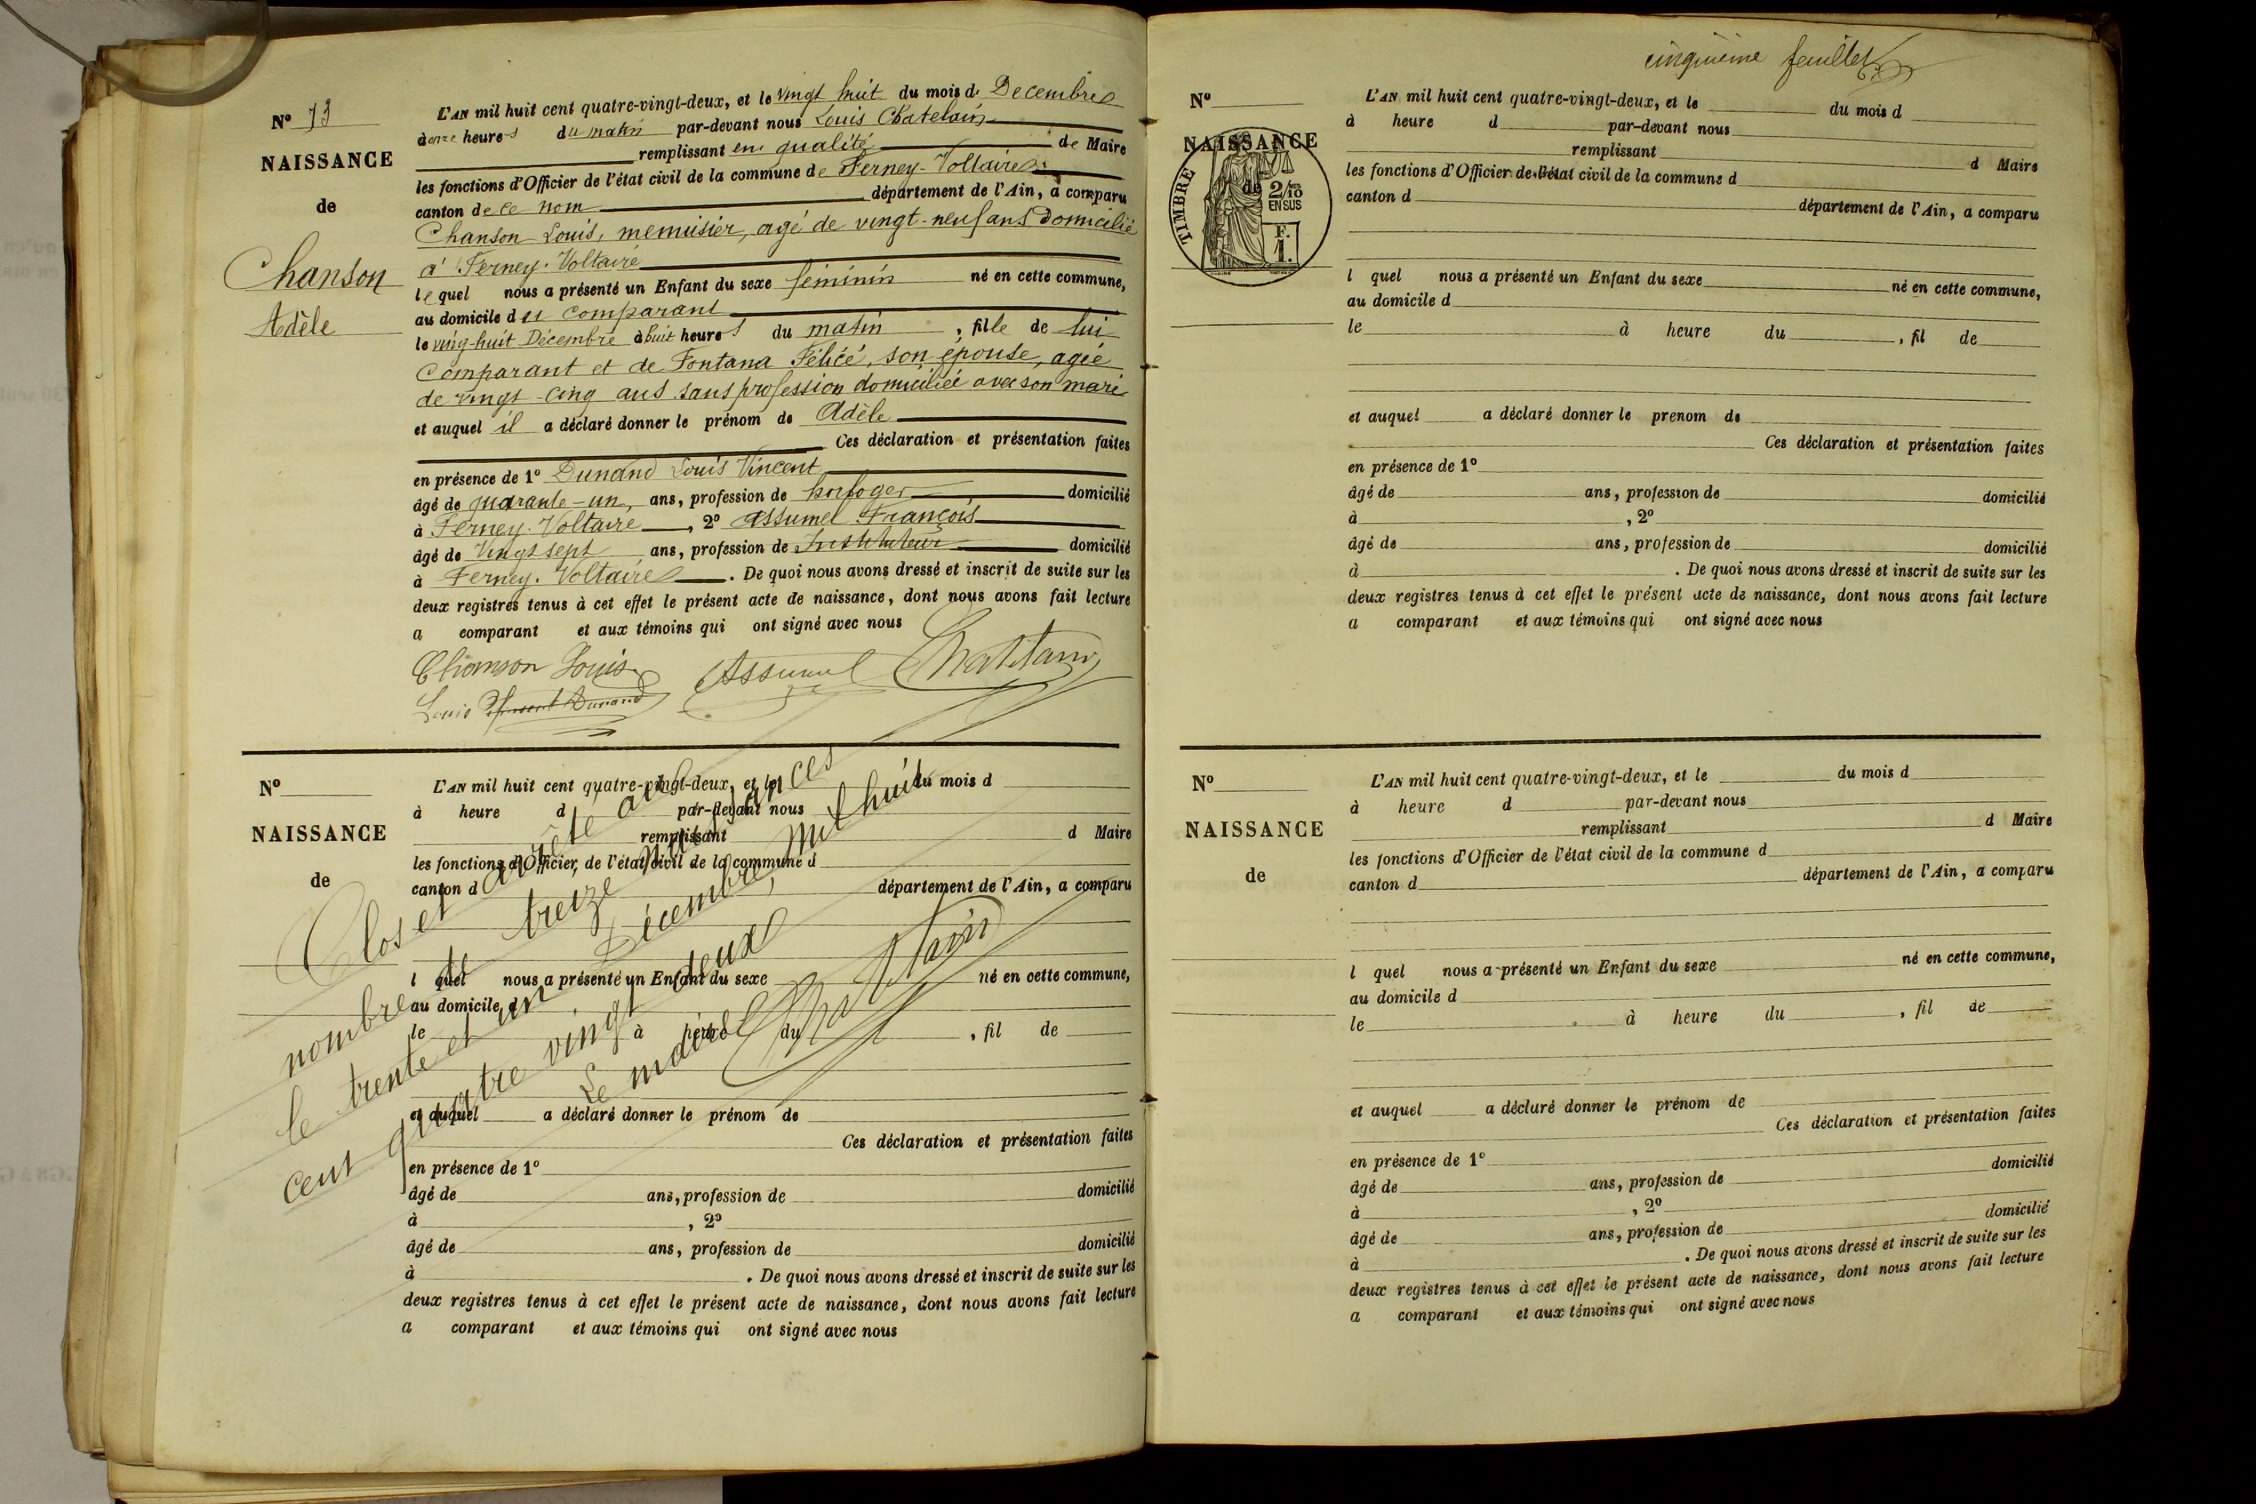 N° 13
NAISSANCE
de
Chanson
Adèle
L'AN mil huit cent quatre-vingt-deux, et le vingt huit du mois de Decembre
à onze heures du matin par-devant nous Louis Chatelain
remplissant en qualité de Maire
les fonctions d'Officier de l'état civil de la commune de Ferney-Voltaire
canton de ce nom département de l'Ain, a comparu
Chanson Louis, menuisier, agé de vingt-neuf ans Domicilié
à Ferney-Voltaire
lequel nous a présenté un Enfant du sexe féminin né en cette commune,
au domicile du comparant
le ving-huit Décembre à huit heures du matin, fille de lui
Comparant et de Fontana Félicé, son épouse, agée
de vingt-cinq ans sans profession domiciliée avec son mari
et auquel il a déclaré donner le prénom de Adèle
Ces déclaration et présentation faites
en présence de 1° Dunand Louis Vincent
âgé de quarante-un, ans, profession de horloger domicilié
à Ferney-Voltaire, 2° Assumel François
âgé de Vingt sept ans, profession de Instituteur domicilié
à Ferney-Voltaire. De quoi nous avons dressé et inscrit de suite sur les
deux registres tenus à cet effet le présent acte de naissance, dont nous avons fait lecture
a comparant et aux témoins qui ont signé avec nous
Chanson Louis Assumel Chatelain
Louis Vincent Dunand
N°
NAISSANCE
de
L'AN mil huit cent quatre-vingt-deux, et le du mois d
à heure d par-devant nous
remplissant d Maire
les fonctions d'Officier de l'état civil de la commune d
canton d département de l'Ain, a comparu
l quel nous a présenté un Enfant du sexe né en cette commune,
au domicile d
le à heure du , fil de
et auquel a déclaré donner le prénom de
Ces déclaration et présentation faites
en présence de 1°
âgé de ans, profession de domicilié
à , 2°
âgé de ans, profession de domicilié
à . De quoi nous avons dressé et inscrit de suite sur les
deux registres tenus à cet effet le présent acte de naissance, dont nous avons fait lecture
a comparant et aux témoins qui ont signé avec nous
Clos et arrêté au
nombre de treize naissances
le trente et un Décembre, mil huit
cent quatre vingt deux
Le maire Chatelain
cinquième feuillet
N°
NAISSANCE
de
TIMBRE
2/10
EN SUS
F.
1.
L'AN mil huit cent quatre-vingt-deux, et le du mois d
à heure d par-devant nous
remplissant d Maire
les fonctions d'Officier de l'état civil de la commune d
canton d département de l'Ain, a comparu
l quel nous a présenté un Enfant du sexe né en cette commune,
au domicile d
le à heure du , fil de
et auquel a déclaré donner le prenom de
Ces déclaration et présentation faites
en présence de 1°
âgé de ans, profession de domicilié
à , 2°
âgé de ans, profession de domicilié
à . De quoi nous avons dressé et inscrit de suite sur les
deux registres tenus à cet effet le présent acte de naissance, dont nous avons fait lecture
a comparant et aux témoins qui ont signé avec nous
N°
NAISSANCE
de
L'AN mil huit cent quatre-vingt-deux, et le du mois d
à heure d par-devant nous
remplissant d Maire
les fonctions d'Officier de l'état civil de la commune d
canton d département de l'Ain, a comparu
l quel nous a présenté un Enfant du sexe né en cette commune,
au domicile d
le à heure du , fil de
et auquel a déclaré donner le prénom de
Ces déclaration et présentation faites
en présence de 1°
âgé de ans, profession de domicilié
à , 2°
âgé de ans, profession de domicilié
à . De quoi nous avons dressé et inscrit de suite sur les
deux registres tenus à cet effet le présent acte de naissance, dont nous avons fait lecture
a comparant et aux témoins qui ont signé avec nous